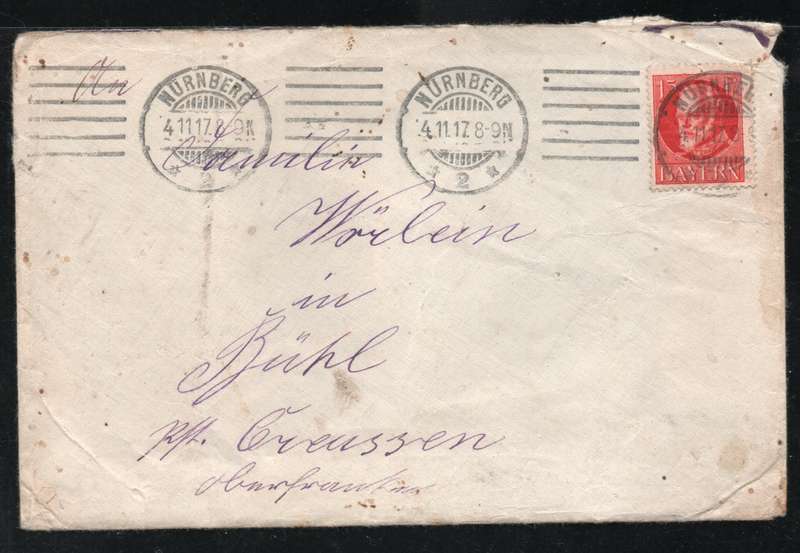 An
NÜRNBERG
4.11.17. 8-9N
* 2 *
NÜRNBERG
4.11.17. 8-9N
* 2 *
15
NÜRNBERG
4.11.17.
BAYERN
Familie
Wörlein
in
Bühl
Pst. Creussen
Oberfranken